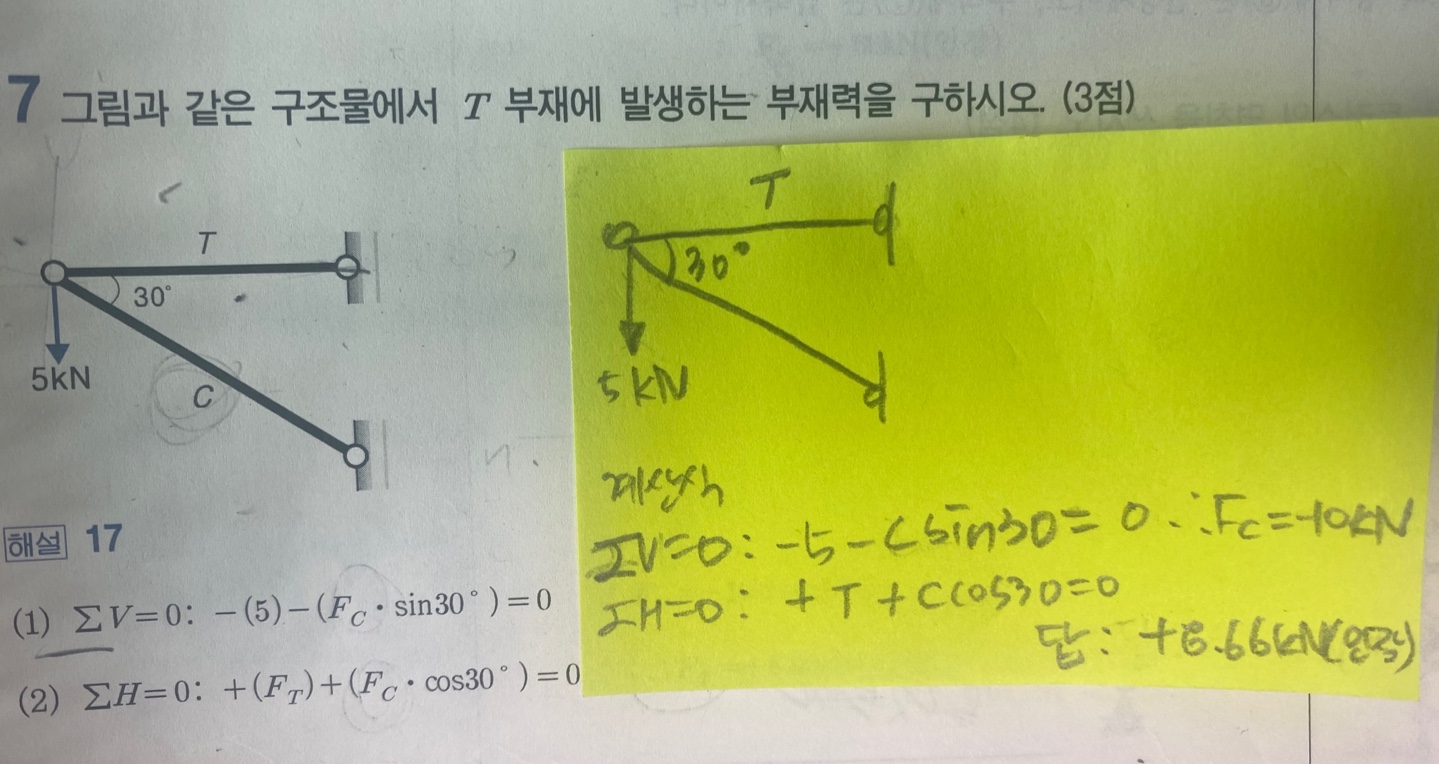 7 그림과 같은 구조물에서 T 부재에 발생하는 부재력을 구하시오. (3점)
T
30°
5kN
C
해설 17
(1) ΣV=0: -(5)-(F_C·sin30°)=0
(2) ΣH=0: +(F_T)+(F_C·cos30°)=0
T
30°
5kN
ΣV=0: -5-Csin30=0 ∴F_C=-10kN
ΣH=0: +T+Ccos30=0
답: +8.66kN(인장)